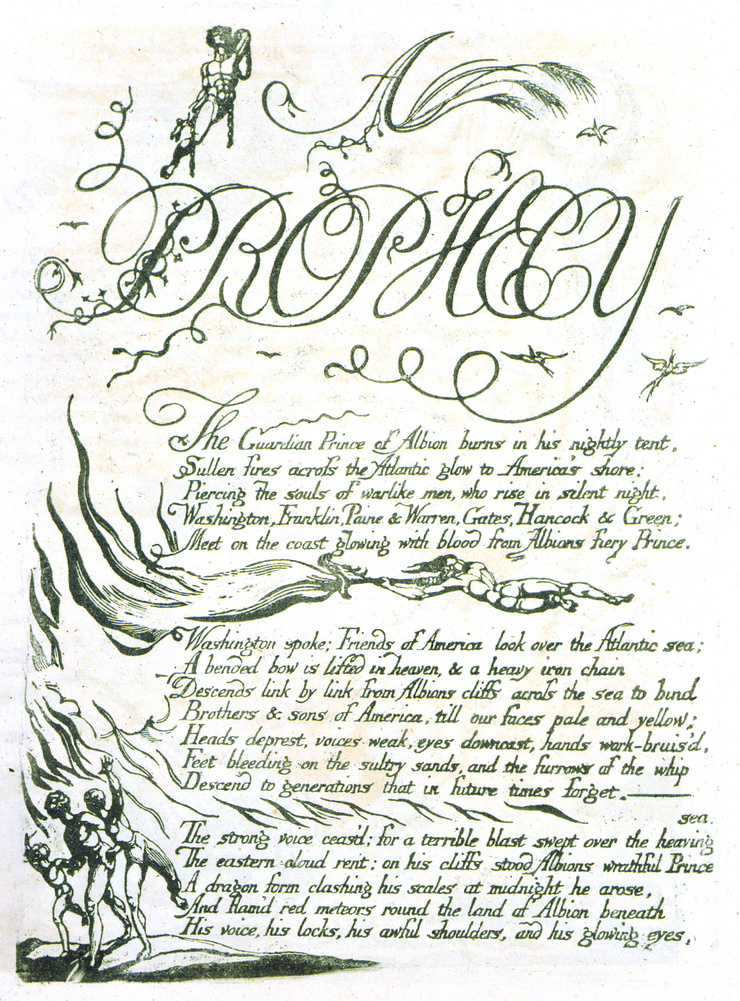 A
PROPHECY
The Guardian Prince of Albion burns in his nightly tent,
Sullen fires across the Atlantic glow to America's shore:
Piercing the souls of warlike men, who rise in silent night,
Washington, Franklin, Paine & Warren, Gates, Hancock & Green;
Meet on the coast glowing with blood from Albions fiery Prince.
Washington spoke; Friends of America look over the Atlantic sea;
A bended bow is lifted in heaven, & a heavy iron chain
Descends link by link from Albions cliffs across the sea to bind
Brothers & sons of America, till our faces pale and yellow;
Heads deprest, voices weak, eyes downcast, hands work-bruis'd,
Feet bleeding on the sultry sands, and the furrows of the whip
Descend to generations that in future times forget.
sea.
The strong voice ceas'd; for a terrible blast swept over the heaving
The eastern cloud rent: on his cliffs stood Albions wrathful Prince
A dragon form clashing his scales at midnight he arose,
And flam'd red meteors round the land of Albion beneath
His voice, his locks, his awful shoulders, and his glowing eyes,